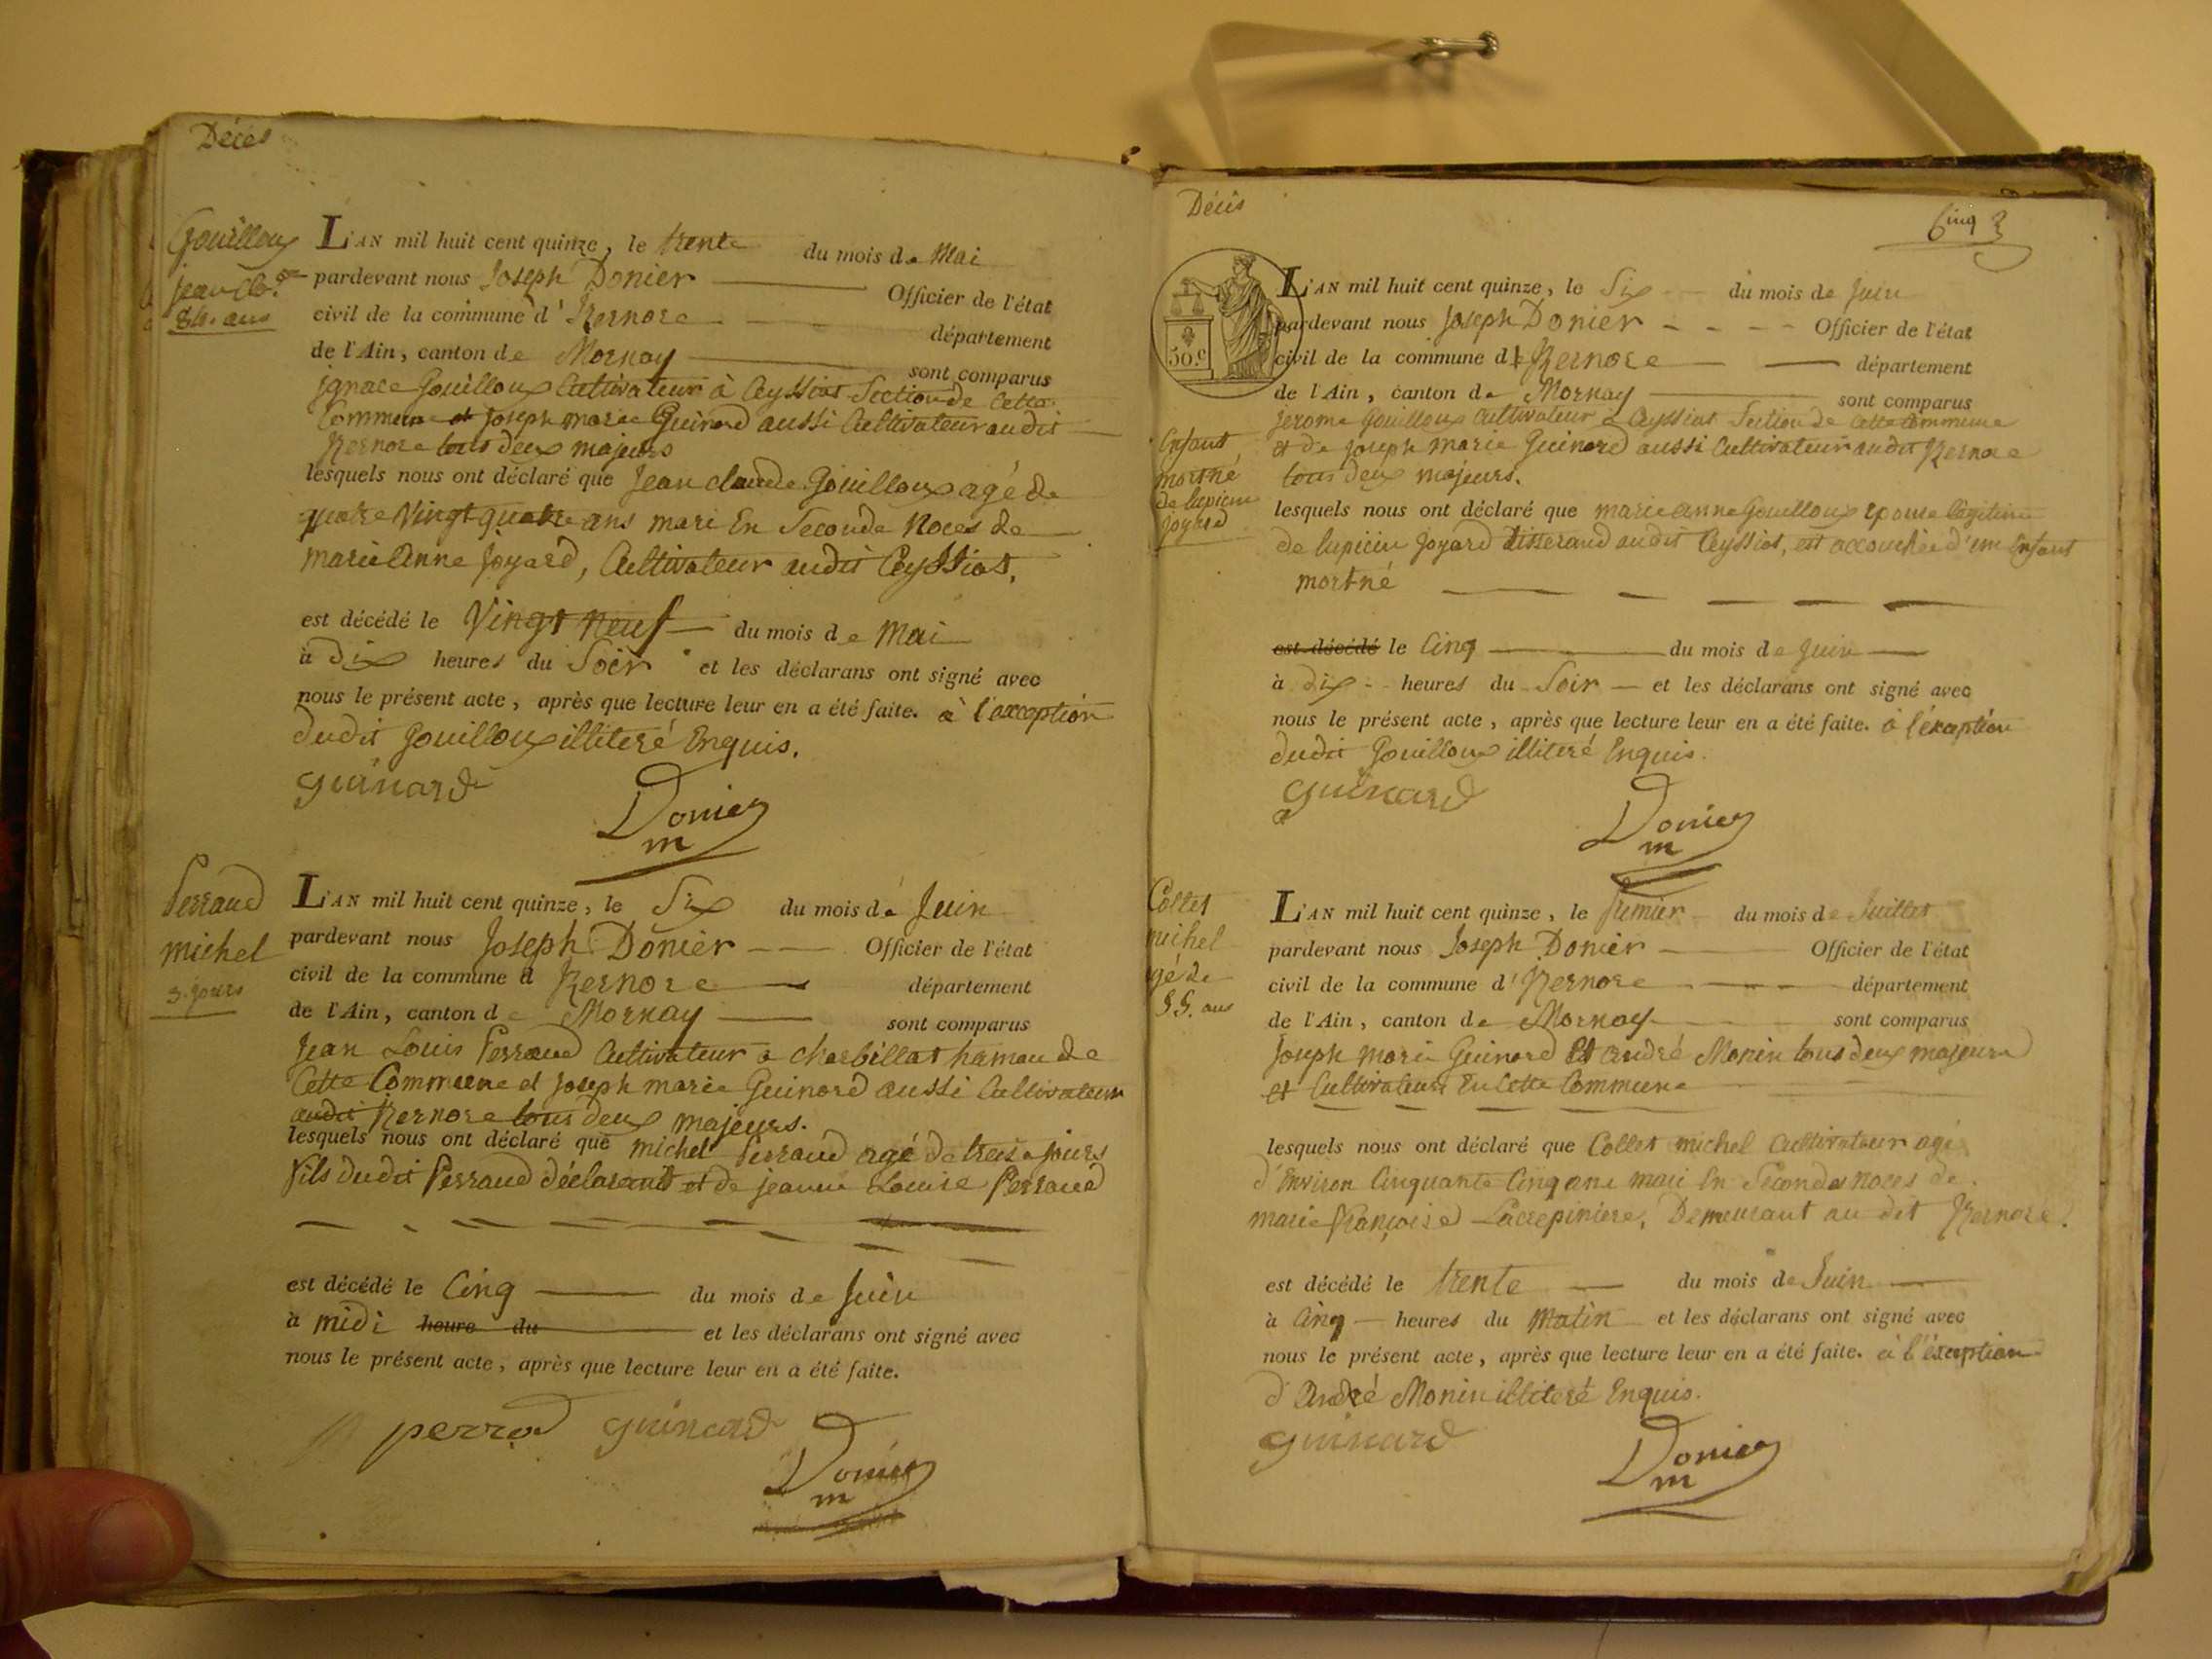 Décès
Gouilloux
jean cl.de
84. ans
L'AN mil huit cent quinze, le trente du mois de Mai
pardevant nous Joseph Donier Officier de l'état
civil de la commune d' Izernore département
de l'Ain, canton de Mornay sont comparus
ignace Gouilloux Cultivateur à Ceyssiat Section de Cette
Commune et joseph marie Guinard aussi Cultivateur audit
Izernore tous deux majeurs
lesquels nous ont déclaré que Jean claude Gouilloux agé de
quatre Vingt quatre ans mari En Seconde Noces de
marie Anne Joyard, Cultivateur audit Ceyssiat,
est décédé le Vingt Neuf du mois de Mai
à dix heures du Soir et les déclarans ont signé avec
nous le présent acte, après que lecture leur en a été faite. à l'exception
dudit Gouilloux illiteré Enquis.
guinard
Donier
m
Perraud
michel
3. jours
L'AN mil huit cent quinze, le Six du mois de Juin
pardevant nous Joseph Donier Officier de l'état
civil de la commune d Izernore département
de l'Ain, canton de Mornay sont comparus
Jean Louis Perraud Cultivateur à charbillat hamau de
Cette Commune et joseph marie Guinard aussi Cultivateur
audit Izernore tous deux majeurs.
lesquels nous ont déclaré que michel Perraud agé de trois jours
fils dudit Perraud déclarant et de jeanne Louise Perraud
est décédé le Cinq du mois de Juin
à midi heure du et les déclarans ont signé avec
nous le présent acte, après que lecture leur en a été faite.
perrod guinard
Donier
m
Décès
Cinq
30.c
Enfant
mortné
de lupicin
joyard
L'AN mil huit cent quinze, le Six du mois de Juin
pardevant nous Joseph Donier Officier de l'état
civil de la commune d' Izernore département
de l'Ain, canton de Mornay sont comparus
Jerome Gouilloux Cultivateur à Ceyssiat Section de Cette Commune
et de joseph marie Guinard aussi Cultivateur audit Izernore
tous deux majeurs.
lesquels nous ont déclaré que marie anne Gouilloux epouse legitime
de lupicin joyard tisserand audit Ceyssiat, est accouchée d'un Enfant
mortné
est décédé le Cinq du mois de Juin
à dix heures du Soir et les déclarans ont signé avec
nous le présent acte, après que lecture leur en a été faite. à l'exeption
dudit Gouilloux illiteré Enquis.
guinard
Donier
m
Collet
michel
gé de
55. ans
L'AN mil huit cent quinze, le premier du mois de Juillet
pardevant nous Joseph Donier Officier de l'état
civil de la commune d' Izernore département
de l'Ain, canton de Mornay sont comparus
Joseph marie Guinard Et André Monin tous deux majeurs
et Cultivateurs En Cette Commune
lesquels nous ont déclaré que Collet michel Cultivateur agé
d'Environ Cinquante Cinq ans mari En Secondes noces de
marie françoise Lacrepiniere, Demeurant au dit Izernore.
est décédé le trente du mois de Juin
à Cinq heures du Matin et les déclarans ont signé avec
nous le présent acte, après que lecture leur en a été faite. à l'éxeption
d'André Monin illiteré Enquis.
guinard
Donier
m